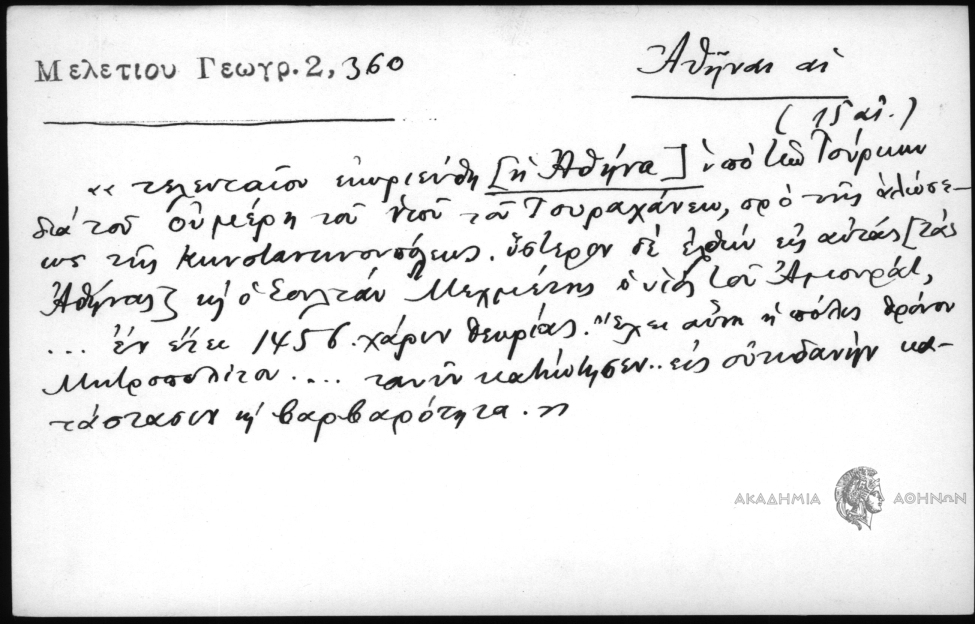 Μελετιου Γεωγρ. 2, 360
Ἀθῆναι αἱ
(15 αἰ.)
«τελευταῖον ἐκυριεύθη [ἡ Ἀθήνα] ὑπὸ τῶν Τούρκων
διὰ τοῦ Οὐμέρη τοῦ υἱοῦ τοῦ Τουραχάνεω, πρὸ τῆς ἁλώσε-
ως τῆς Κωνσταντινουπόλεως. ὕστερον δὲ ἐλθὼν εἰς αὐτάς [τάς
Ἀθήνας] κὴ ὁ Σουλτὰν Μεχμέτης ὁ υἱὸς τοῦ Ἀμουράτ,
... ἐν ἔτει 1456. χάριν θεωρίας. "ἔχει αὕτη ἡ πόλις θρόνον
Μητροπολίτου .... τανῦν κατήντησεν.. εἰς οὐτιδανὴν κα-
τάστασιν κὴ βαρβαρότητα.»
ΑΚΑΔΗΜΙΑ ΑΘΗΝΩΝ